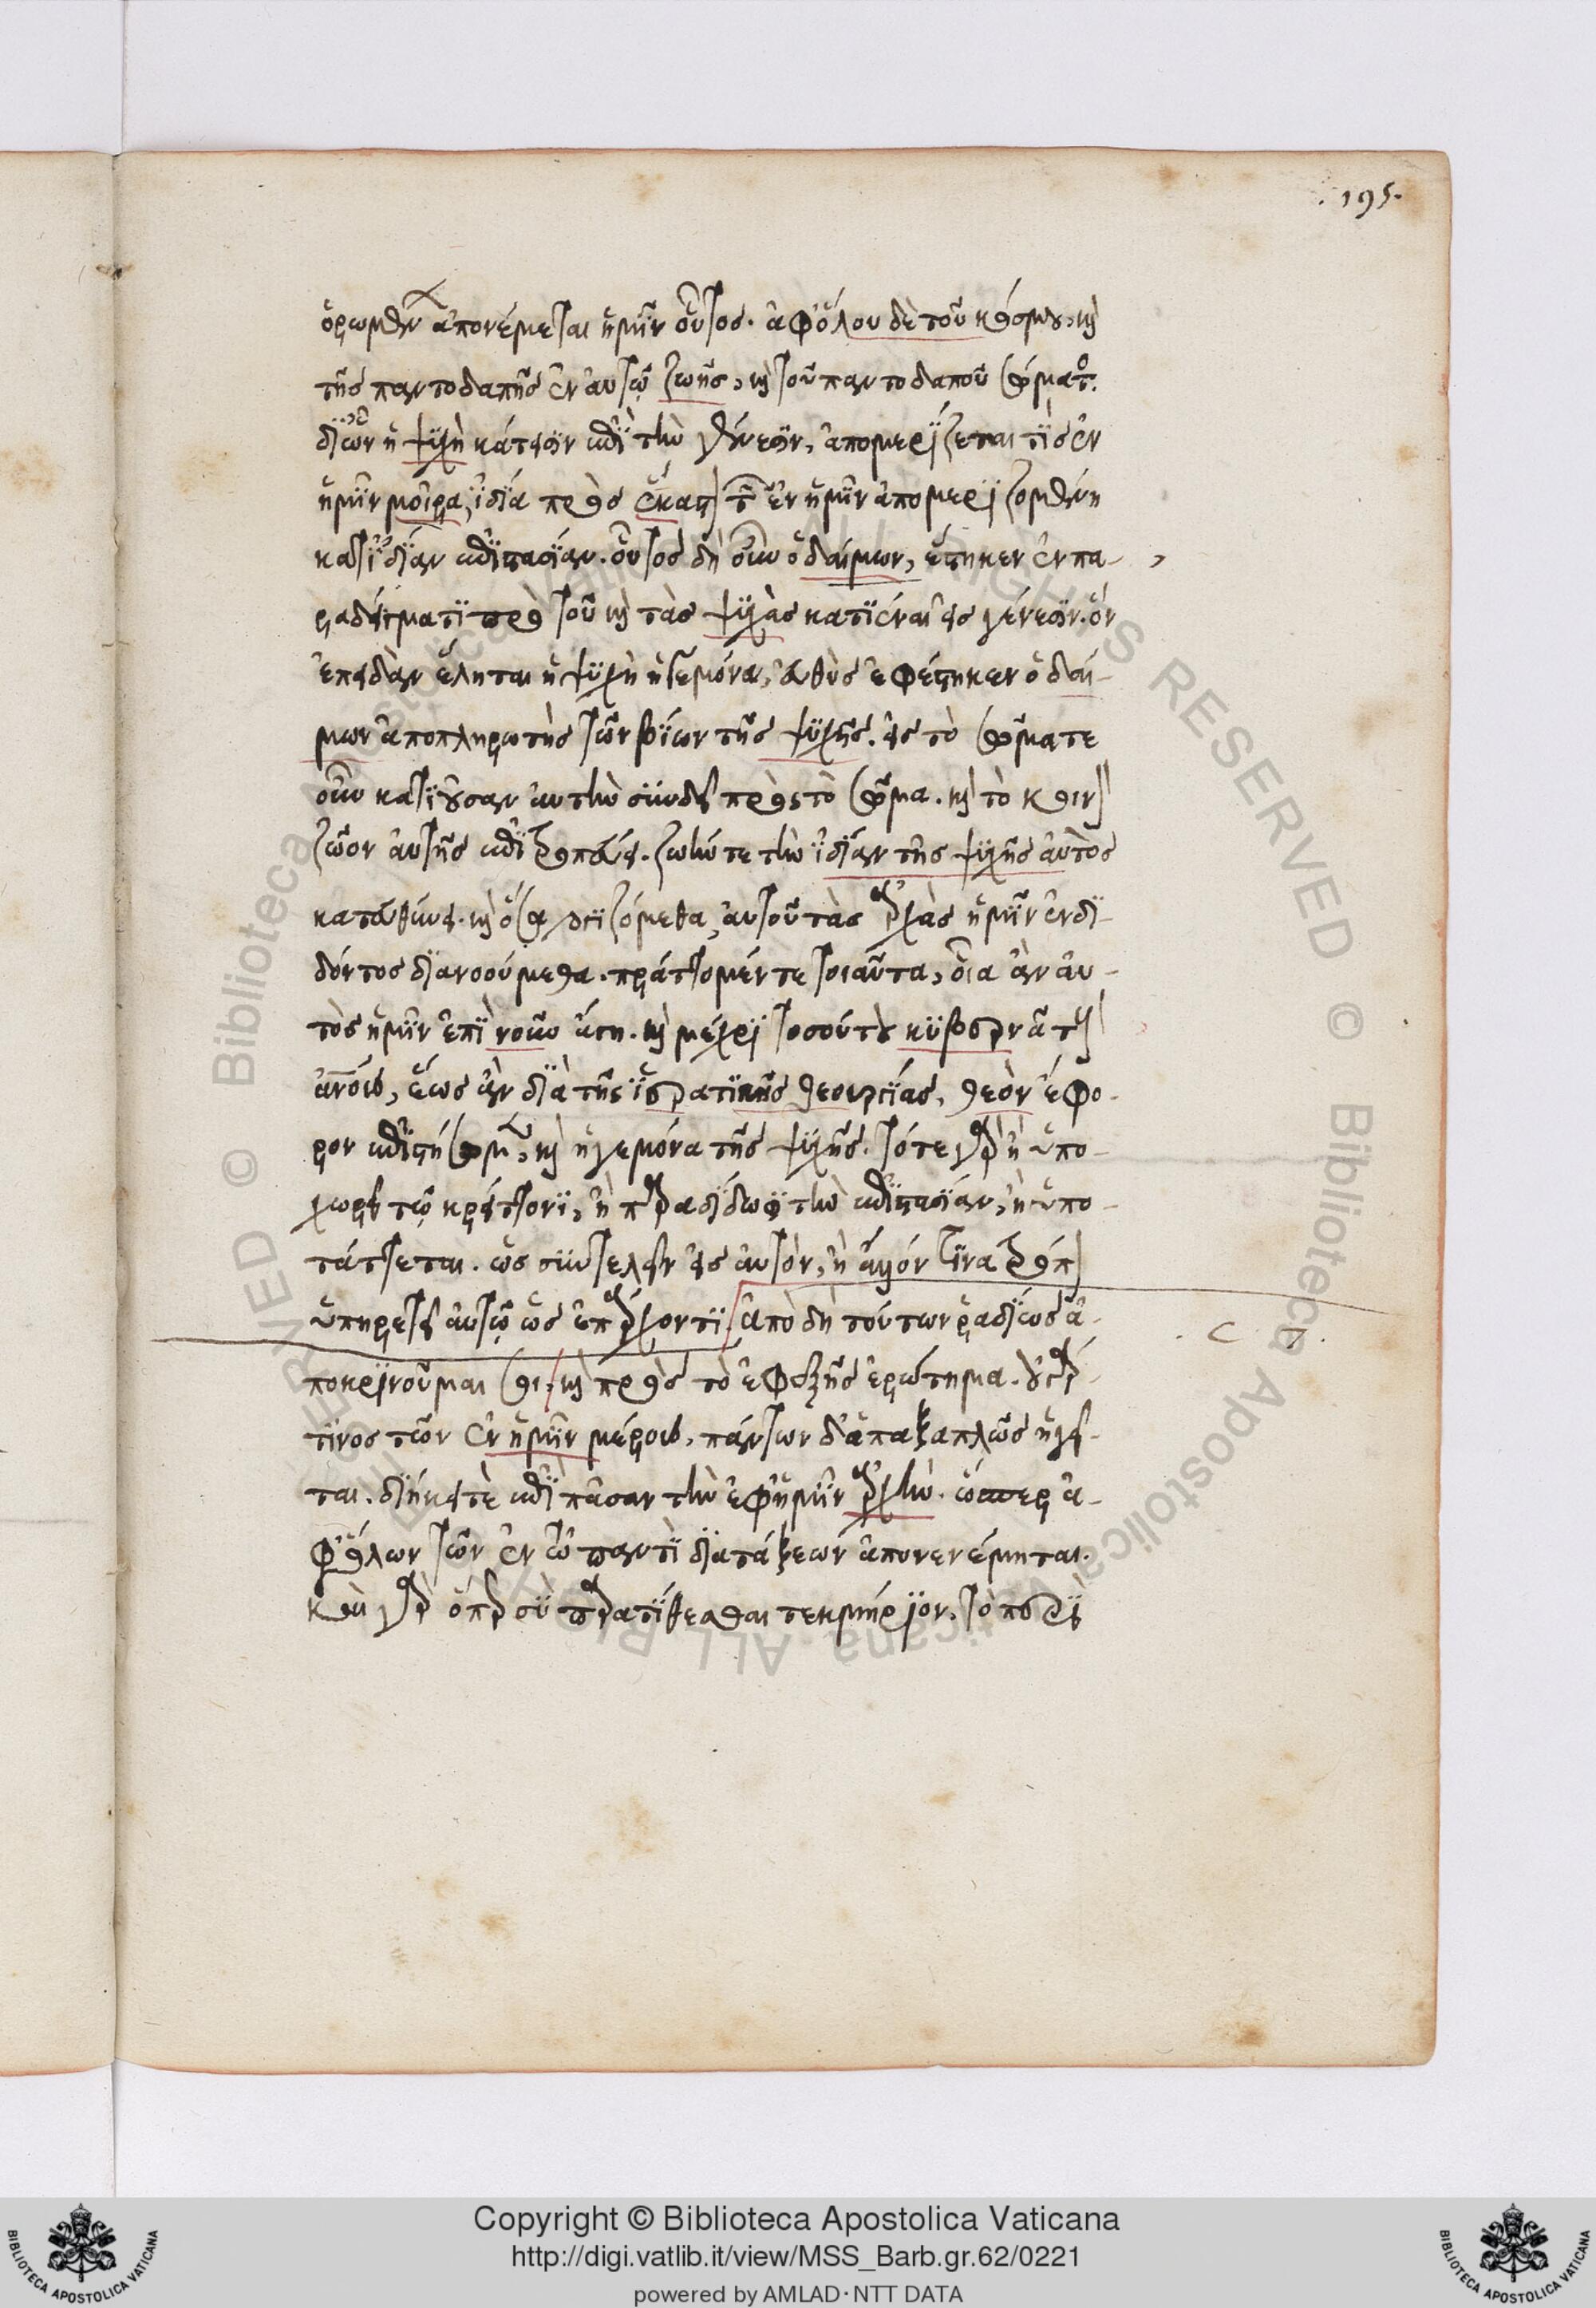 .195.
ὁρωμένων ἀπονέμεται ἡμῖν οὗτος. ἀφ' ὅλου δὲ τοῦ κόσμου, καὶ
τῆς παντοδαπῆς ἐν αὐτῷ ζωῆς, καὶ τοῦ παντοδαποῦ σώματος.
δι' ὧν ἡ ψυχὴ κάτεισιν ἐπὶ τὴν γένεσιν, ἀπομερίζεται τὶς ἐν
ἡμῖν μοῖρα, ἰδία πρὸς ἕκαστον τῶν ἐν ἡμῖν ἀπομεριζομένη
κατ' ἰδίαν ἐπιστασίαν. οὗτος δὴ οὖν ὁ δαίμων, ἕστηκεν ἐν πα-
ραδείγματι πρὸ τοῦ καὶ τὰς ψυχὰς κατιέναι εἰς γένεσιν. ὃν
ἐπειδὰν ἕληται ἡ ψυχὴ ἡγεμόνα, εὐθὺς ἐφέστηκεν ὁ δαί-
μων ἀποπληρωτὴς τῶν βίων τῆς ψυχῆς. εἰς τὸ σῶμα τε
οὖν κατιοῦσαν αὐτὴν συνδεῖ πρὸς τὸ σῶμα. καὶ τὸ κοινὸν
ζῶον αὐτῆς ἐπιτροπεύει. ζωήν τε τὴν ἰδίαν τῆς ψυχῆς αὐτὸς
κατευθύνει. καὶ ὅσα λογιζόμεθα, αὐτοῦ τὰς ἀρχὰς ἡμῖν ἐνδι-
δόντος διανοούμεθα. πράττομέν τε τοιαῦτα, οἷα ἂν αὐ-
τὸς ἡμῖν ἐπὶ νοῦν ἄγῃ. καὶ μέχρι τοσούτου κυβερνᾷ τοὺς
ἀνθρώπους, ἕως ἂν διὰ τῆς ἱερατικῆς θεουργίας, θεὸν ἔφο-
ρον ἐπιστήσωμεν, καὶ ἡγεμόνα τῆς ψυχῆς. τότε γὰρ ἢ ὑπο-
χωρεῖ τῷ κρείττονι, ἢ παραδίδωσι τὴν ἐπιστασίαν, ἢ ὑπο-
τάττεται. ὡς συντελεῖν εἰς αὐτὸν, ἢ ἄλλον τινα τρόπον
ὑπηρετεῖ αὐτῷ ὡς ἐπάρχοντι. ἀπὸ δὴ τούτων ῥαδίως ἀ-
. C 7.
ποκρινοῦμαι σοι καὶ πρὸς τὸ ἐφεξῆς ἐρώτημα. οὐ γάρ
τινος τῶν ἐν ἡμῖν μέρους, πάντων δ' ἅπαξ ἁπλῶς ἡγεῖ-
ται. διήκει τὲ ἐπὶ πᾶσαν τὴν ἐφ' ἡμῖν ἀρχὴν. ὥσπερ ἀ-
φ' ὅλων τῶν ἐν τῷ παντὶ διατάξεων ἀπονενέμηται.
καὶ γὰρ ὅπερ σὺ παρατίθεσθαι τεκμήριον, τὸ περὶ